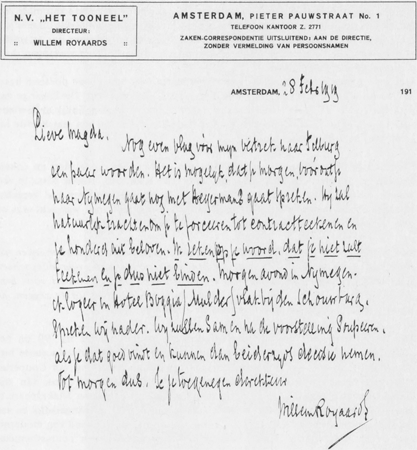 N.V. „HET TOONEEL”
DIRECTEUR:
WILLEM ROYAARDS
AMSTERDAM, PIETER PAUWSTRAAT No. 1
TELEFOON KANTOOR Z. 2771
ZAKEN-CORRESPONDENTIE UITSLUITEND: AAN DE DIRECTIE,
ZONDER VERMELDING VAN PERSOONSNAMEN
AMSTERDAM, 28 Feb 1919 191
Lieve Magda.
Nog even vlug vóór mijn vertrek naar Tilburg
een paar woorden. Het is mogelijk, dat je morgen, vóór
naar Nijmegen gaat nog met Heyermans gaat spreken. Hij zal
natuurlijk trachten om je te forceeren tot contractteekenen en
je honderd uit beloven. Ik reken op je woord, dat je niet zult
teekenen en je dus niet binden. Morgenavond in Nijmegen -
ik logeer in Hotel Boggia/Mulder/vlak bij den Schouwburg.
spreken wij nader. Wij zullen Samen na de voorstelling Soupeeren.
als je dat goed vindt en kunnen dan beiderzijds decisie nemen.
Tot morgen dus. Je toegenegen directeur
Willem Royaards